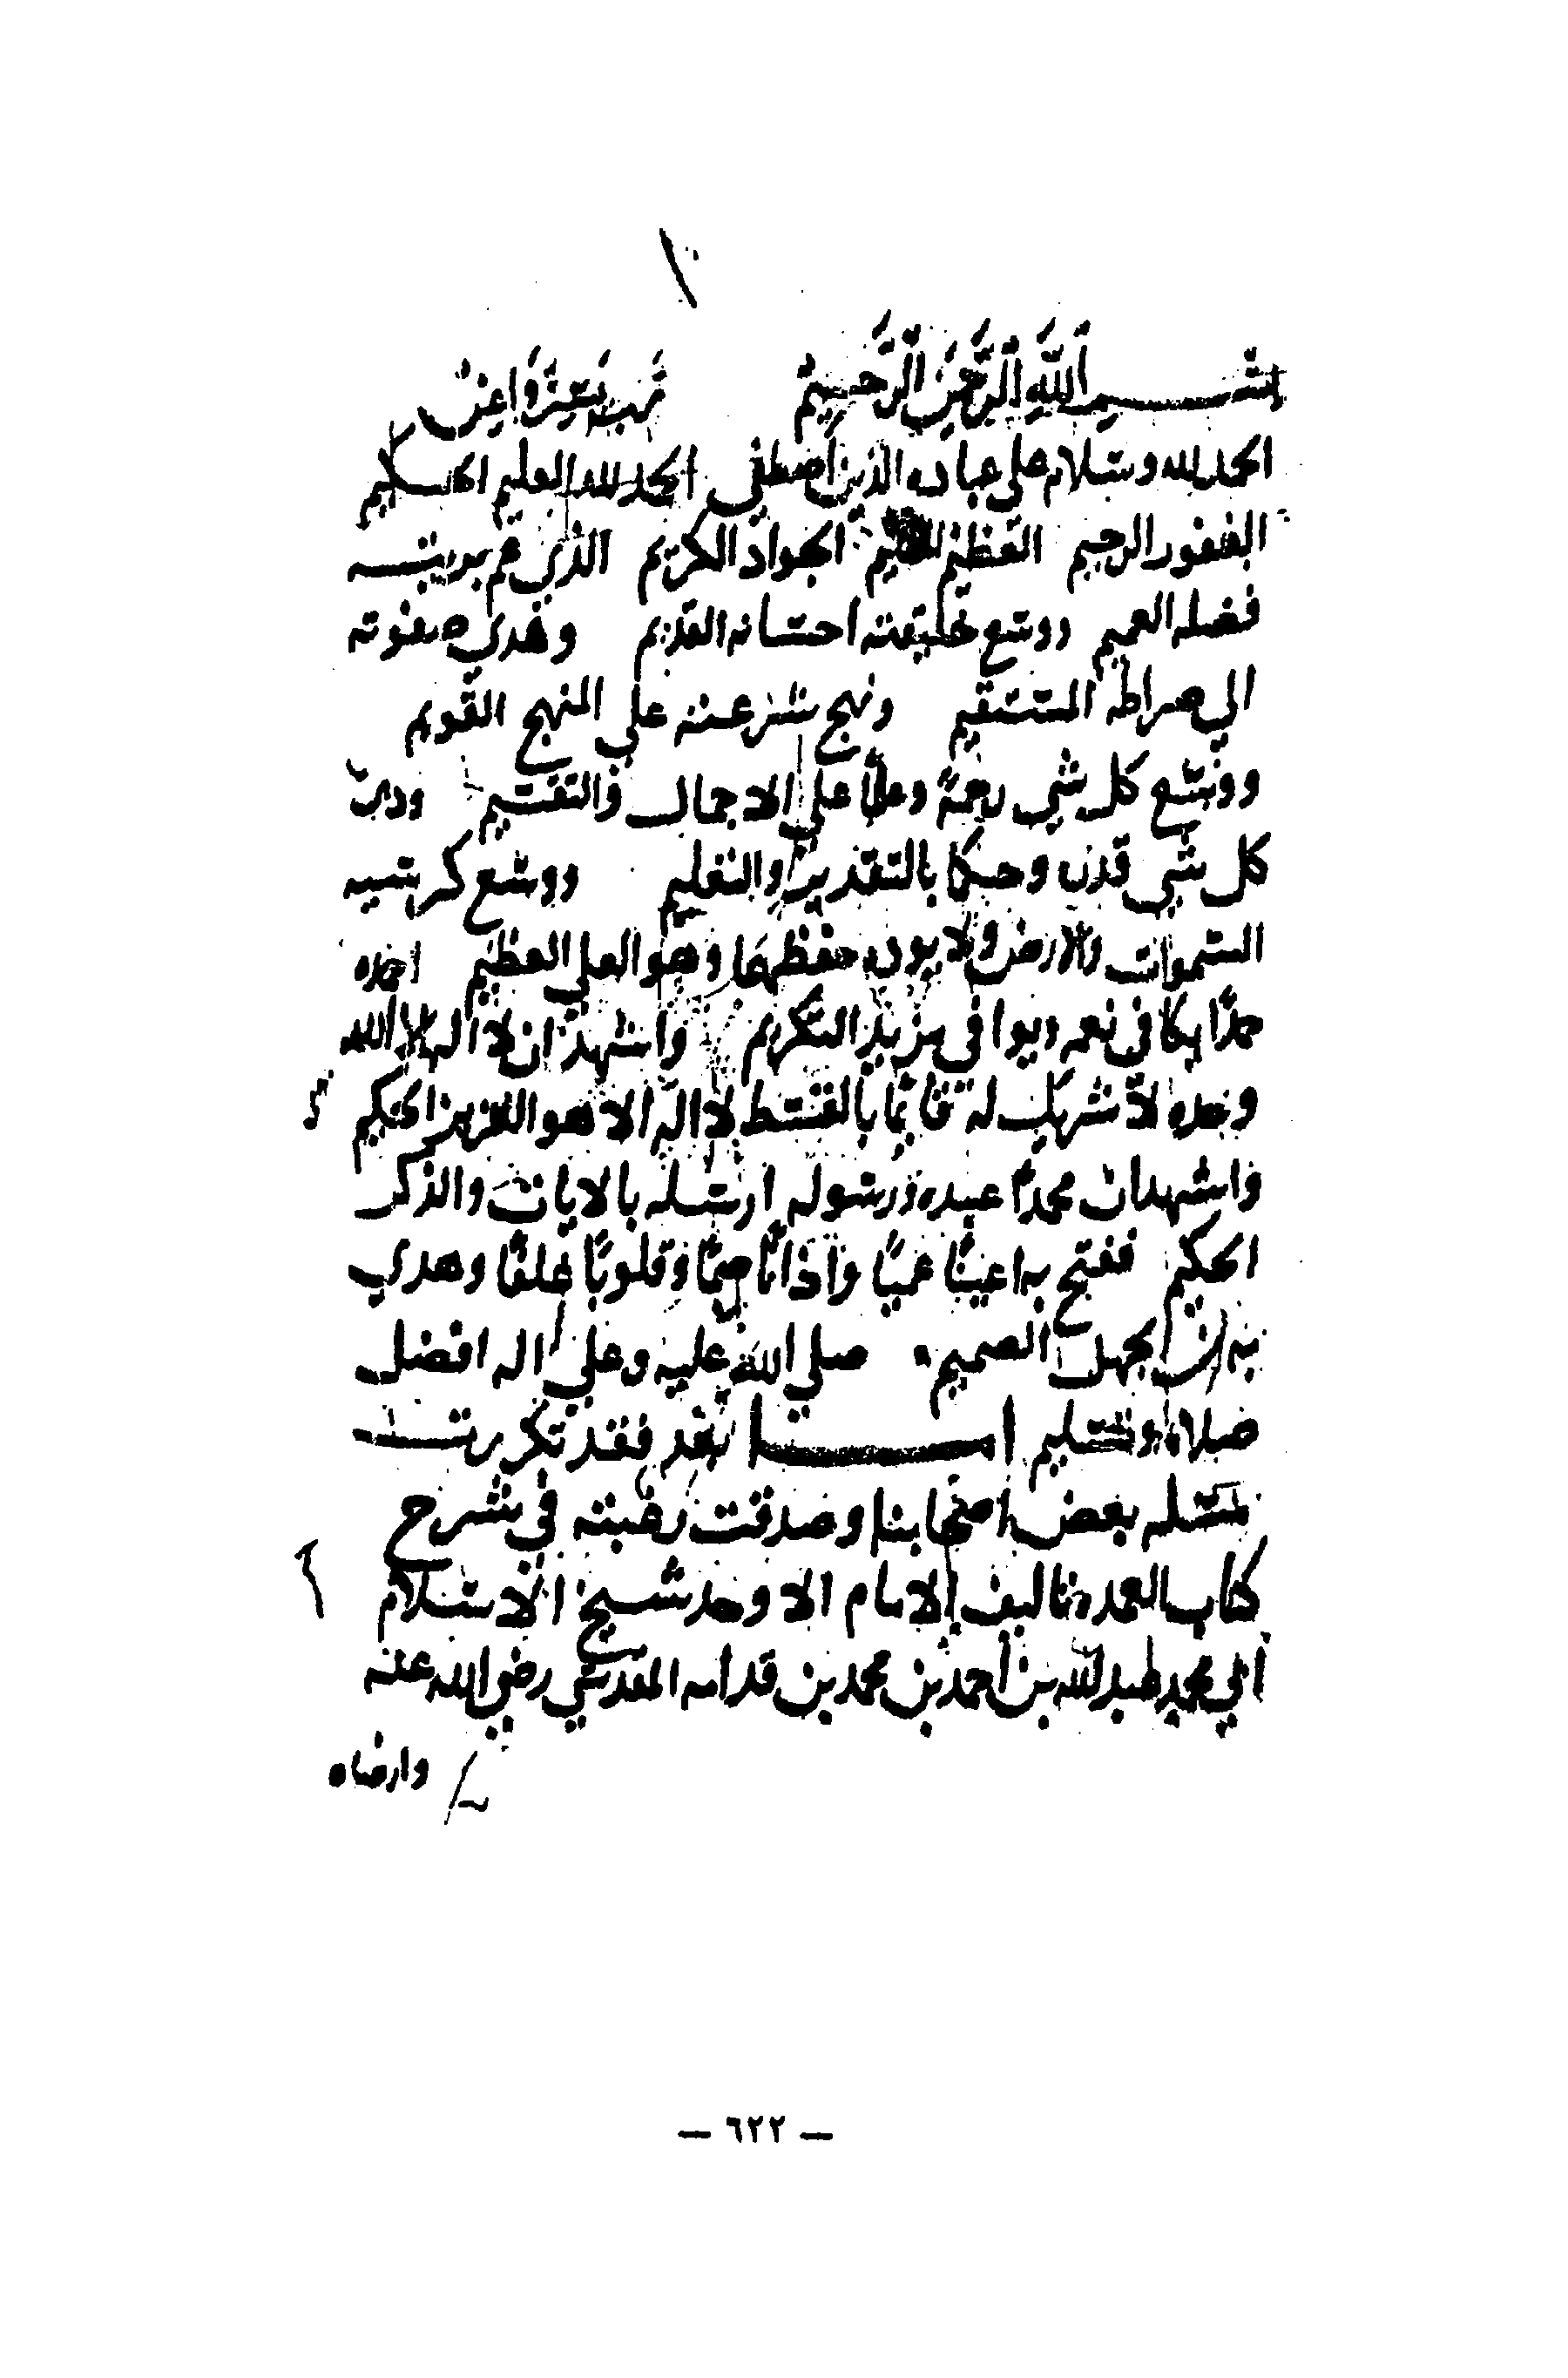 بسم اللهِ الرَّحمنِ الرَّحيمِ رب يسر واعن
الحمد لله وسلام على عباده الذين اصطفى الحمد لله العليم الحكيم
الغفور الرحيم العظيم الحليم الجواد الكريم الذي عم بريته
فضله العميم ووسع خليقته احسانه القديم وهدى صفوته
الي صراطه المستقيم ونهج شرعته على النهج القويم
ووسع كل شي رحمةً وعلمًا على الاجمال والتقسيم
كل شي وحكمًا بالتقدير والتعليم ووسع كرسيه
السموات والارض ولا يوده حفظهما وهو العلي العظيم احمده
حمدًا يكافي نعمه ويوافي مزيد التكريم واشهد ان لا اله الا الله
وحده لا شريك له قائمًا بالقسط لا اله الا هو العزيز الحكيم
واشهد ان محمدًا عبده ورسوله ارسله بالايات والذكر
الحكيم ففتح به اعينًا عميًا واذانًا صمًا وقلوبًا غلفًا وهدى
به من الجهل الصميم صلى الله عليه وعلى اله افضل
صلاة وتسليم اما بعد فقد تكررت
مسئلة بعض اصحابنا وصدقت رغبته في شرح
كتاب العمدة تاليف الامام الاوحد شيخ الاسلام
ابي محمد عبد الله بن أحمد بن محمد بن قدامه المقدسي رضي الله عنه
وارضاه
— ٦٢٢ —